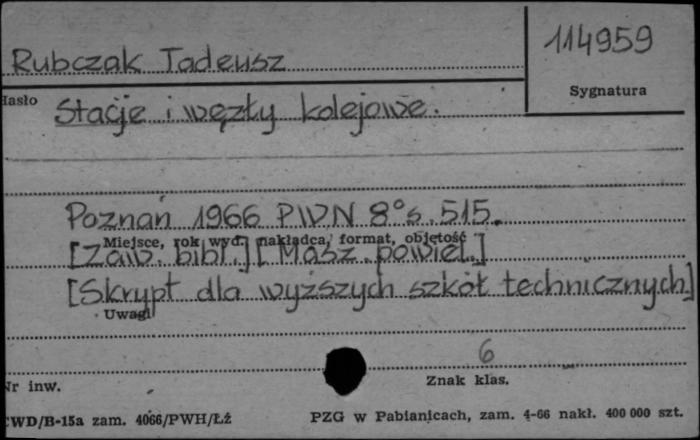 Rubczak Tadeusz
114959
Sygnatura
Hasło
Stacje i węzły kolejowe.
Poznań 1966 PWN 8° s. 515.
Miejsce, rok wyd., nakładca, format, objętość
[Zaw. bibl.] [Masz. powiel.]
[Skrypt dla wyższych szkół technicznych]
Uwagi
6
Nr inw.
Znak klas.
CWD/B-15a zam. 4066/PWH/Łż
PZG w Pabianicach, zam. 4-66 nakł. 400 000 szt.